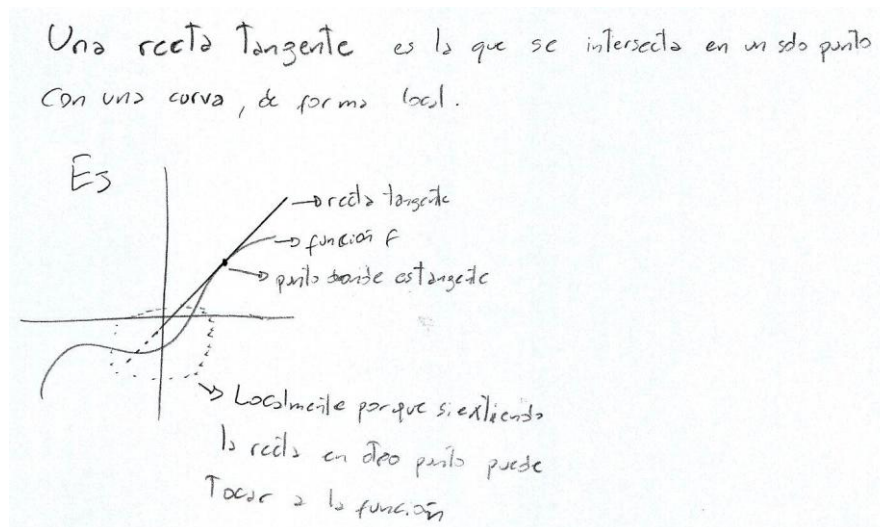 Una recta Tangente es la que se intersecta en un solo punto
Con una curva, de forma local.
Ej
→ recta tangente
→ función f
→ punto donde es tangente
→ Localmente porque si extiendo
la recta en otro punto puede
Tocar a la función